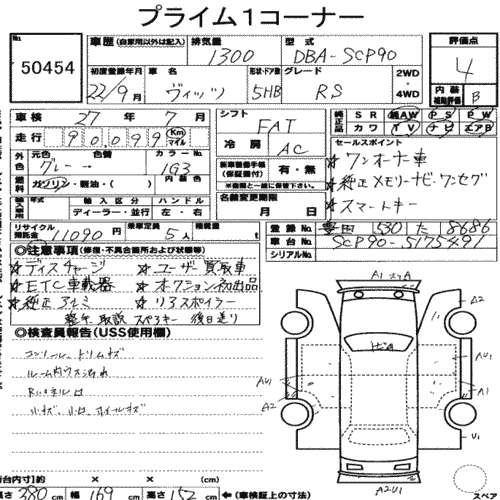 プライム1コーナー
No.
50454
車歴(自家用以外は記入) 排気量 型式 評価点
1300 DBA-SCP90 4
初度登録年月 車名 形状・ドア数 グレード 2WD・4WD 内装補助評価 B
22/9月 ヴィッツ 5HB RS
車検 27年7月 シフト FAT
純正品 SR 革 AW PS PW
カワ TV ナビ エアB
走行 90,099 Km マイル 冷房 AC
セールスポイント
外色 元色 色替 カラーNo.
グレー→ 1G3
★ワンオーナー車
燃料 ガソリン・軽油・( ) 内装色
新車整備手帳(保証書付) 有・無
※後日一緒に保管して下さい。
★純正メモリーナビ・ワンセグ
輸入車 輸入区分 ハンドル
ディーラー・並行 左・右
名義変更期限 月 日
★スマートキー
リサイクル預託金 11090円 乗車定員 5人 積載量 t
登録No. 豊田 530 た 8686
車台No. SCP90-5175491
シリアルNo.
◎注意事項(修復・不具合箇所および状態等)
★ディスチャージ ★ユーザー買取車
★ETC車載器 ★オークション初出品
★純正アルミ ★リアスポイラー
整手、取説、スペアキー 後日送り
◎検査員報告(USS使用欄)
コンソール、トリムキズ
ルーム内ウス汚れ
小キズ、小凹、ホイールキズ
A1
A2
AU1
A1
AU1
A2
A1
U1
A2U1
高さ 380cm 幅 169cm 高さ 152cm ←(車検証上の寸法)
スペア